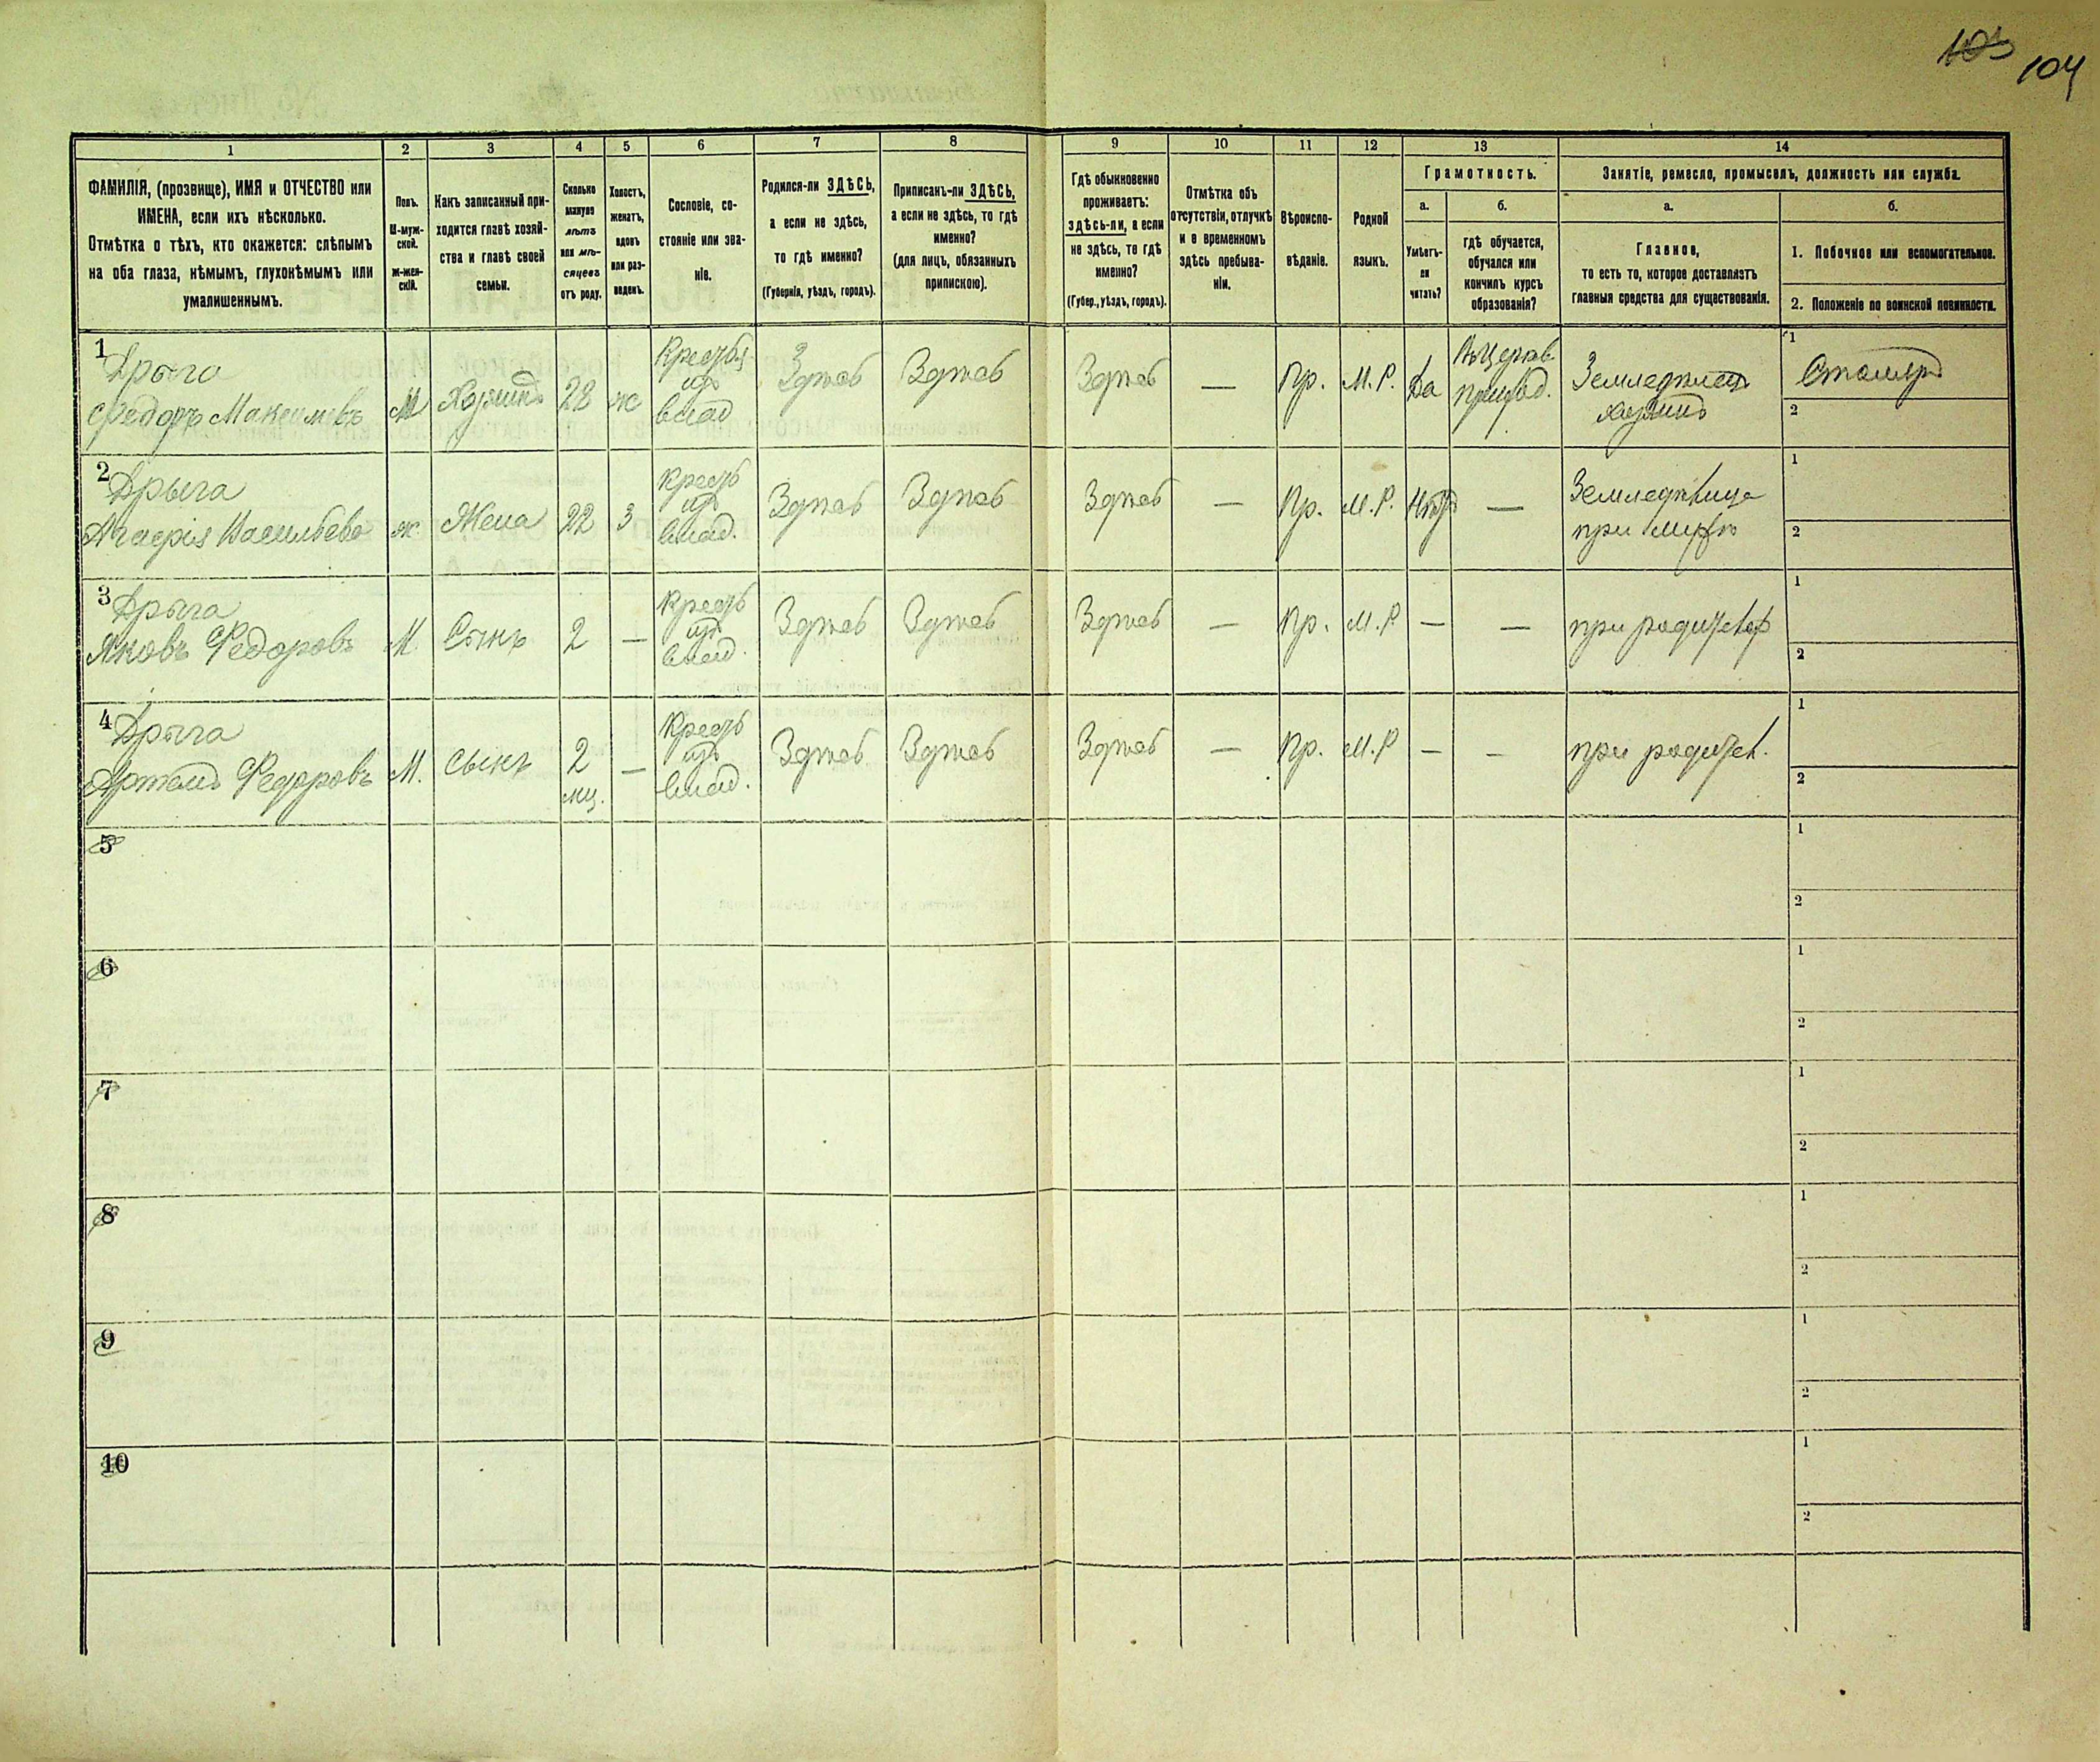 103 104
1 2 3 4 5 6 7 8 9 10 11 12 13 14
ФАМИЛІЯ, (прозвище), ИМЯ и ОТЧЕСТВО или
ИМЕНА, если ихъ нѣсколько.
Отмѣтка о тѣхъ, кто окажется: слѣпымъ
на оба глаза, нѣмымъ, глухонѣмымъ или
умалишеннымъ.
Полъ.
М-муж-
ской.
Ж-жен-
скій.
Какъ записанный при-
ходится главѣ хозяй-
ства и главѣ своей
семьи.
Сколько
минуло
лѣтъ
или мѣ-
сяцевъ
отъ роду.
Холостъ,
женатъ,
вдовъ
или раз-
веденъ.
Сословіе, со-
стояніе или зва-
ніе.
Родился-ли ЗДѢСЬ,
а если не здѣсь,
то гдѣ именно?
(Губернія, уѣздъ, городъ).
Приписанъ-ли ЗДѢСЬ,
а если не здѣсь, то гдѣ
именно?
(для лицъ, обязанныхъ
припискою).
Гдѣ обыкновенно
проживаетъ:
здѣсь-ли, а если
не здѣсь, то гдѣ
именно?
(Губер., уѣздъ, городъ).
Отмѣтка объ
отсутствіи, отлучкѣ
и о временномъ
здѣсь пребыва-
ніи.
Вѣроиспо-
вѣданіе.
Родной
языкъ.
Грамотность.
а.
Умѣетъ-
ли
читать?
б.
гдѣ обучается,
обучался или
кончилъ курсъ
образованія?
Занятіе, ремесло, промыселъ, должность или служба.
а.
Главное,
то есть то, которое доставляетъ
главныя средства для существованія.
б.
1. Побочное или вспомогательное.
2. Положеніе по воинской повинности.
1 Дрыга
Федоръ Максимовъ
М Хозяинъ 28 ж
из
влад
Здѣсь Здѣсь Здѣсь — Пр. М.Р. Да
Земледѣлецъ
хозяинъ
1 Столяръ
2
2 Дрыга
Агафія Васильева
ж. Жена 22 З
Крест
из
влад.
Здѣсь Здѣсь Здѣсь — Пр. М.Р. Нѣтъ —
Земледѣлица
при мужѣ
1
2
3 Дрыга
Яковъ Федоровъ
М Сынъ 2 —
Крест
из
влад.
Здѣсь Здѣсь Здѣсь — Пр. М.Р — —
при родителях
1
2
4 Дрыга
Федоровъ
М. сынъ 2
мц. —
Крест
из
влад.
Здѣсь Здѣсь Здѣсь — Пр. М.Р — —
при родител.
1
2
5
1
2
6
1
2
7
1
2
8
1
2
9
1
2
10
1
2